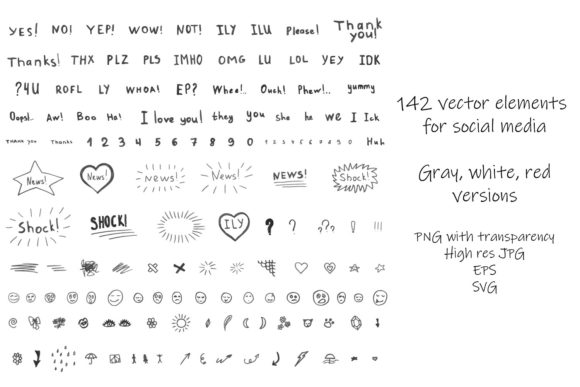 YES! NO! YEP! WOW! NOT! ILY ILU Please! Thank you!
Thanks! THX PLZ PLS IMHO OMG LU LOL YEY IDK
?4U ROFL LY WHOA! EP? Whee!.. Ouch! Phew!.. yummy
Oops!.. Aw! Boo Ha! I love you! they you she he we I Ick
Thank you Thanks 1 2 3 4 5 6 7 8 9 0 1 2 3 4 5 6 7 8 9 0 Huh
News! News! News! News! NEWS! Shock!
Shock! SHOCK! ILY ? ? ??? ! !!!
142 vector elements
for social media
Gray, white, red
versions
PNG with transparency
High res JPG
EPS
SVG